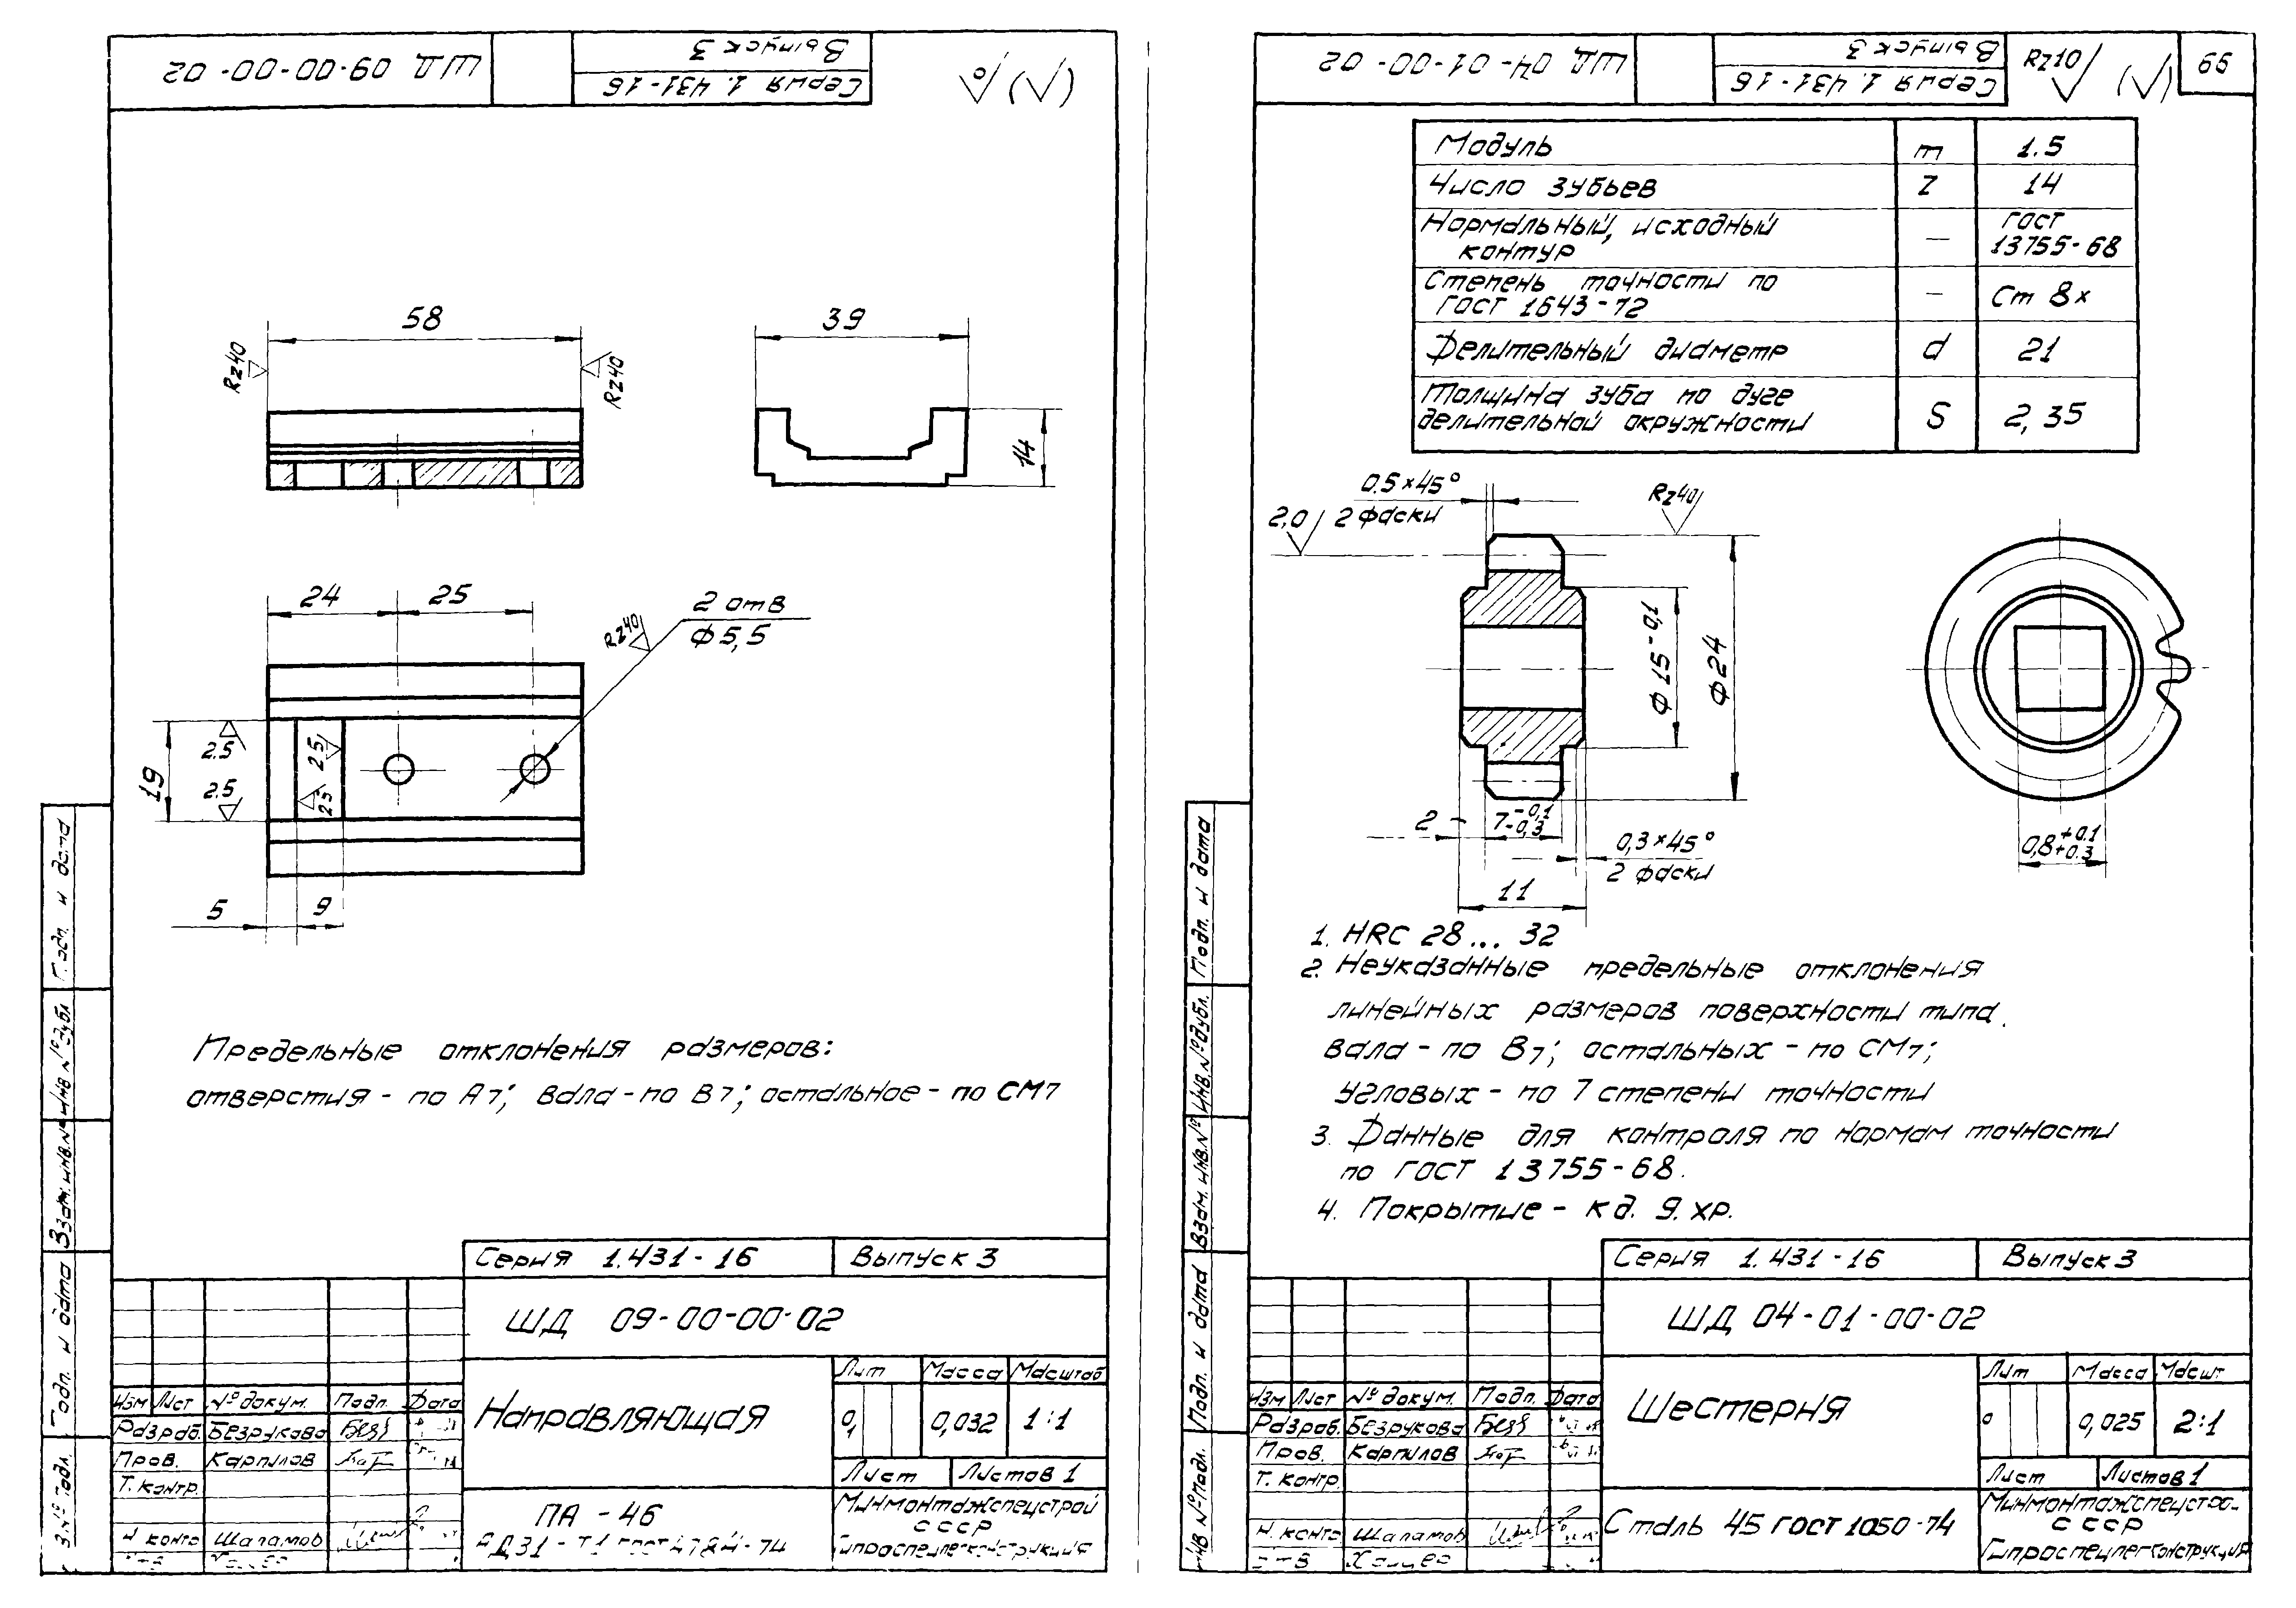 ШД 09-00-00-02
Выпуск 3
Серия 1.431-16
58
Rz40
Rz40
39
14
24
25
Rz40
2 отв
ф5,5
19
2.5
2.5
2.5
2.5
5
9
Предельные отклонения размеров:
отверстия - по А7; вала - по В7; остальное - по СМ7
Серия 1.431-16
Выпуск 3
ШД 09-00-00-02
Направляющая
Лит
Масса
Масштаб
0,1
0,032
1:1
Лист
Листов 1
ПА - 46
АД31-Т1 ГОСТ 4784-74
Минмонтажспецстрой
СССР
Гипроспецлегконструкция
Изм Лист № докум. Подп. Дата
Разраб. Безрукова
Пров. Карпилов
Т. контр.
Н. контр Шаламов
Подп. и дата
Инв. № дубл
Взам. инв. №
Подп. и дата
№ подл.
ШД 04-01-00-02
Выпуск 3
Серия 1.431-16
Rz10 (√)
66
Модуль m 1.5
Число зубьев Z 14
Нормальный, исходный
контур — ГОСТ
13755-68
Степень точности по
ГОСТ 1643-72 — Ст 8х
Делительный диаметр d 21
Толщина зуба по дуге
делительной окружности S 2,35
0.5×45°
2 фаски
2,0
Rz40
ф15-0,1
ф24
2
7-0,1
-0,3
0,3×45°
2 фаски
11
0,8+0.1
+0.3
1. HRC 28... 32
2. Неуказанные предельные отклонения
линейных размеров поверхности типа
вала - по В7; остальных - по СМ7;
угловых - по 7 степени точности
3. Данные для контроля по нормам точности
по ГОСТ 13755-68.
4. Покрытие - кд. 9. хр.
Серия 1.431-16
Выпуск 3
ШД 04-01-00-02
Шестерня
Лит
Масса
Масшт.
0
0,025
2:1
Лист
Листов 1
Сталь 45 ГОСТ 1050-74
Минмонтажспецстро-
СССР
Гипроспецлегконструкция
Изм Лист № докум. Подп. Дата
Разраб. Безрукова
Пров. Карпилов
Т. контр.
Н. контр Шаламов
Подп. и дата
Инв. № дубл.
Взам. инв. №
Подп. и дата
Инв № подл.